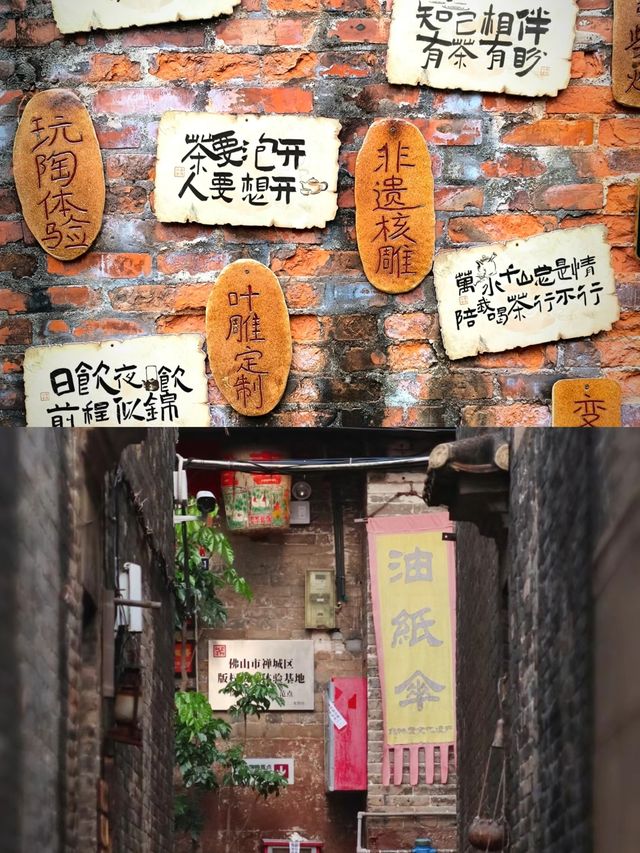 知己相伴
有茶有影
玩陶体验
茶要泡开
人要想开
非遗核雕
萬水千山总是情
陪我喝茶行不行
叶雕定制
日飲夜飲
前程似錦
变
油紙傘
佛山市禅城区
版权 体验基地